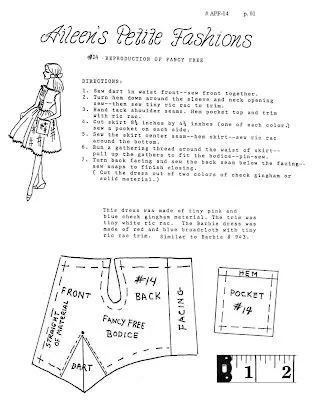 # APR-14 p. 01
Aileen's Petite Fashions
#14 - REPRODUCTION OF FANCY FREE
DIRECTIONS:
1. Sew dart in waist front--sew front together.
2. Turn hem down around the sleeve and neck opening
sew--then sew tiny ric rac to trim.
3. Hand tack shoulder seams. Hem pocket top and trim
with ric rac.
4. Cut skirt 8½ inches by 4½ inches (one of each color.)
sew a pocket on each side.
5. Sew the skirt center seam--hem skirt--sew ric rac
around the bottom.
6. Run a gathering thread around the waist of skirt--
pull up the gathers to fit the bodice--pin-sew.
7. Turn back facing and sew the back seam below the facing--
sew snaps to finish closing.
( Cut the dress out of two colors of check gingham or
solid material.)
This dress was made of tiny pink and
blue check gingham material. The trim was
tiny white ric rac. The Barbie dress was
made of red and blue broadcloth with tiny
ric rac trim. Similar to Barbie # 943.
STRAIGHT OF MATERIAL
FRONT
#-14
BACK
FACING
FANCY FREE
BODICE
DART
HEM
POCKET
#14
1 2